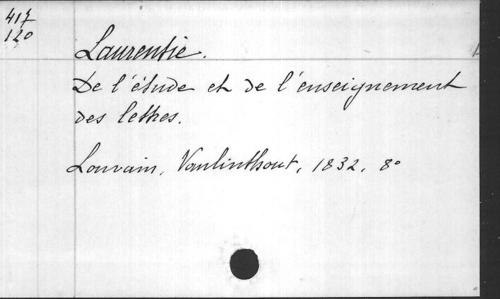 417
120
Laurentie.
De l'étude et de l'enseignement
des lettres.
Louvain, Vanlinthout, 1832, 8°